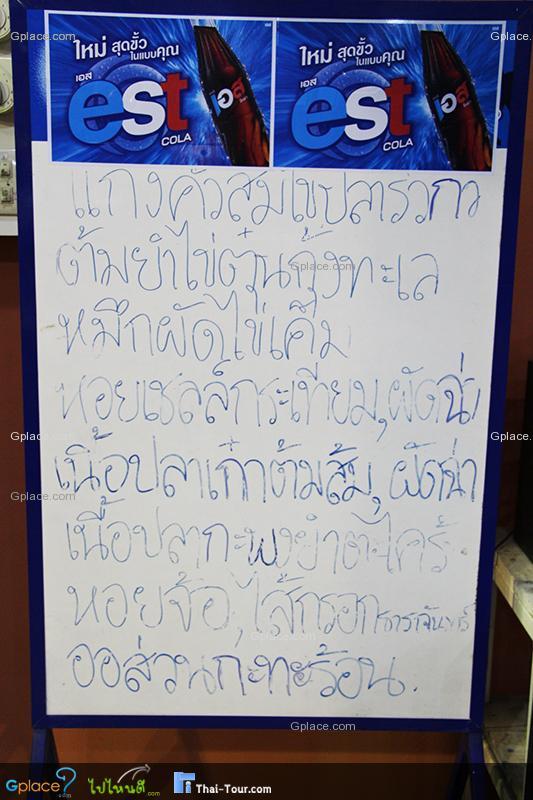 ใหม่ สุดขั้ว ในแบบคุณ
เอส
est
COLA
เอส
ใหม่ สุดขั้ว ในแบบคุณ
เอส
est
COLA
เอส
แกงคั่วส้มไข่ปลาริวกิว
ต้มยำไข่ตุ๋นกุ้งทะเล
หมึกผัดไข่เค็ม
หอยเชลล์กระเทียม, ผัดฉ่า
เนื้อปลาเก๋าต้มส้ม, ผัดฉ่า
เนื้อปลากะพงยำตะไคร้
หอยจ้อ, ไส้กรอก
ออส่วนกะทะร้อน.
Gplace.com
Gplace.com
Gplace.com
Gplace.com
Gplace.com
Gplace.com
Gplace.com
Gplace.com
Gplace.com
Gplace.com
Gplace?.com ไปไหนดี.com Thai-Tour.com